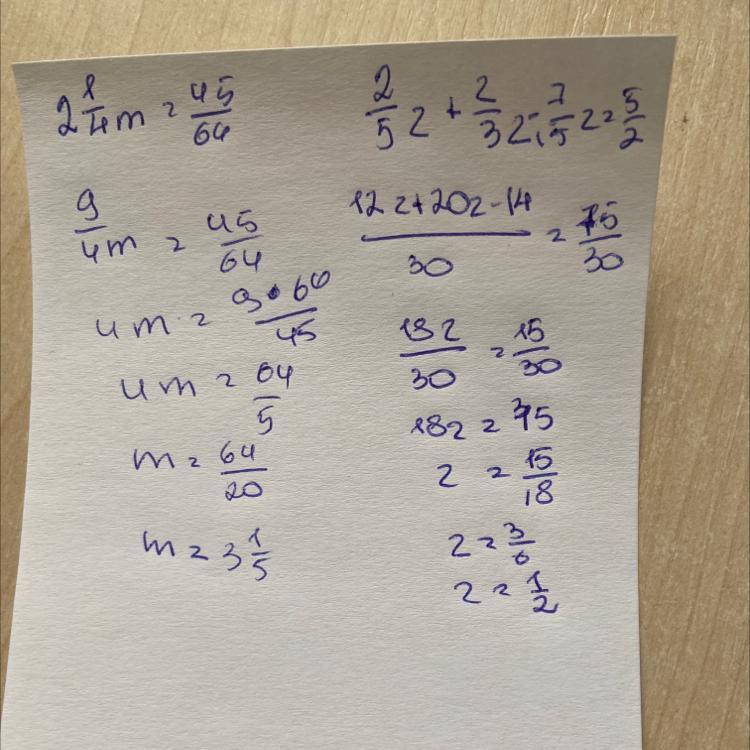 2 1/4 m = 45/64
9/4m = 45/64
4m = 9•64/45
4m = 64/5
m = 64/20
m = 3 1/5
2/5 z + 2/3 z - 7/5 z = 5/2
12z+20z-14/30 = 75/30
18z/30 = 15/30
18z = 75
z = 15/18
z = 3/6
z = 1/2